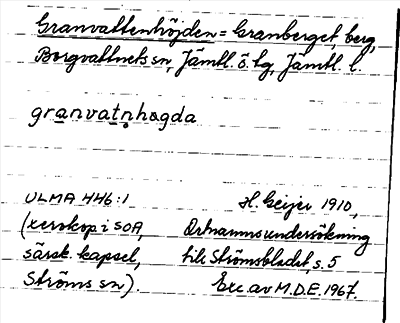 Granvattenhöjden = Granberget, berg,
Borgvattnets sn, Jämtl. ö. tg, Jämtl. l.
granvatnhøgda
ULMA 446:1 H. Geijer 1910,
(xerokop i SOA, Ortnamnsundersökning
särsk. kapsel, till Strömsbladet, s. 5
Ströms sn). Exc. av M.D.E. 1967.